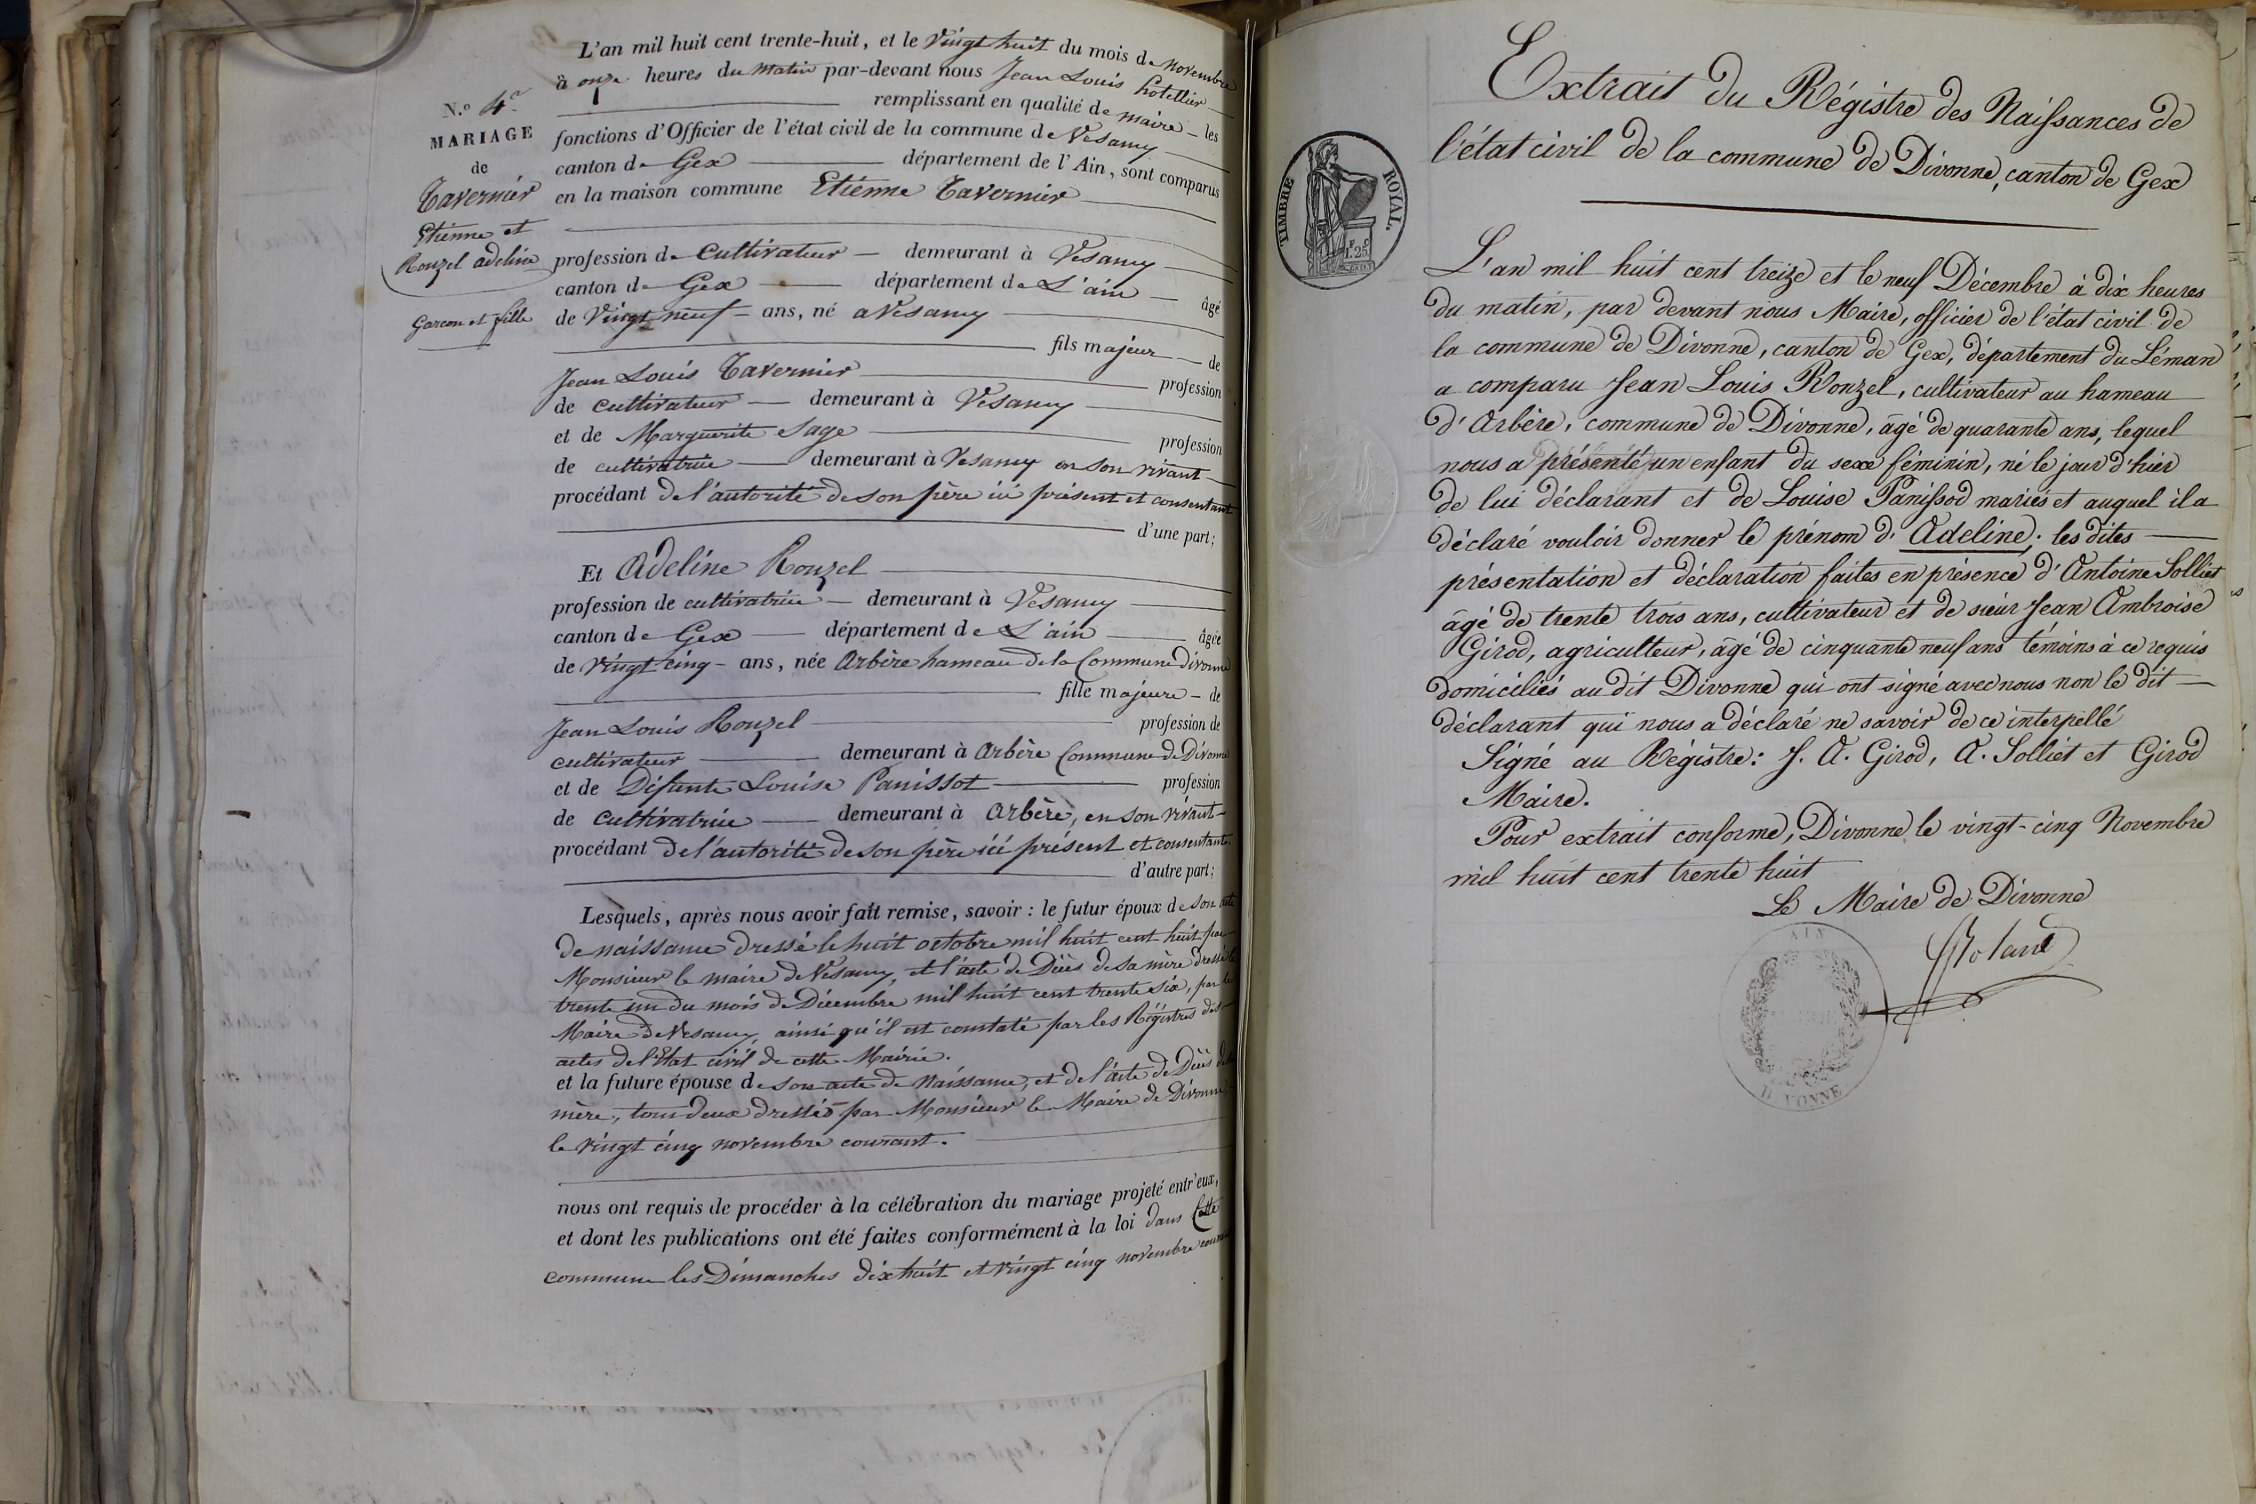 L'an mil huit cent trente-huit, et le Vingt huit du mois de novembre
à onze heures du matin par-devant nous Jean Louis hotellier
remplissant en qualité de maire les
fonctions d'Officier de l'état civil de la commune de Vesancy
canton de Gex département de l'Ain, sont comparus
en la maison commune Etienne Tavernier
N.o 4.e
MARIAGE
de
Tavernier
Etienne et
Ronzel adeline
Garcon et fille
profession de Cultivateur demeurant à Vesancy
canton de Gex département de L'ain âgé
de Vingt neuf ans, né a Vesancy
fils majeur de
Jean Louis Tavernier profession
de cultivateur demeurant à Vesancy
et de Marguerite Sage profession
de cultivatrice demeurant à Vesancy en son vivant
procédant de l'autorité de son père ici présent et consentant
d'une part;
Et Adeline Ronzel
profession de cultivatrice demeurant à Vesancy
canton de Gex département de L'ain âgée
de Vingt cinq ans, née Arbère hameau de la Commune Divonne
fille majeure de
Jean Louis Ronzel profession de
cultivateur demeurant à Arbère Commune de Divonne
et de Défunte Louise Panissot profession
de Cultivatrice demeurant à Arbère, en son vivant
procédant de l'autorité de son père ici présent et consentant
d'autre part;
Lesquels, après nous avoir fait remise, savoir : le futur époux de son acte
de naissance dressé le huit octobre mil huit cent huit par
Monsieur le maire de Vesancy, et l'acte de Décès de sa mère dressé le
trente un du mois de Décembre mil huit cent trente six, par le
Maire de Vesancy, ainsi qu'il est constaté par les Régistres des
actes de l'Etat civil de cette Mairie.
et la future épouse de son acte de Naissance, et de l'acte de Décès de
mère, tous deux dressés par Monsieur le Maire de Divonne
le vingt cinq novembre courant.
nous ont requis de procéder à la célébration du mariage projeté entr'eux,
et dont les publications ont été faites conformément à la loi dans Cette
commune les Dimanches dix huit et vingt cinq novembre
Extrait du Régistre des Naissances de
l'état civil de la commune de Divonne, canton de Gex
TIMBRE ROYAL.
1.F 25.C
L'an mil huit cent treize et le neuf Décembre à dix heures
du matin, par devant nous Maire, officier de l'état civil de
la commune de Divonne, canton de Gex, département du Léman
a comparu Jean Louis Ronzel, cultivateur au hameau
d'Arbère, commune de Divonne, âgé de quarante ans, lequel
nous a présenté un enfant du sexe féminin, né le jour d'hier
de lui déclarant et de Louise Panissod mariés et auquel il a
déclaré vouloir donner le prénom d'Adeline; les dites
présentation et déclaration faites en présence d'Antoine Solliet
âgé de trente trois ans, cultivateur et de sieur Jean Ambroise
Girod, agriculteur, âgé de cinquante neuf ans témoins à ce requis
domiciliés au dit Divonne qui ont signé avec nous non le dit
déclarant qui nous a déclaré ne savoir de ce interpellé
Signé au Régistre: J. A. Girod, A. Solliet et Girod
Maire.
Pour extrait conforme, Divonne le vingt-cinq Novembre
mil huit cent trente huit
Le Maire de Divonne
AIN
DIVONNE